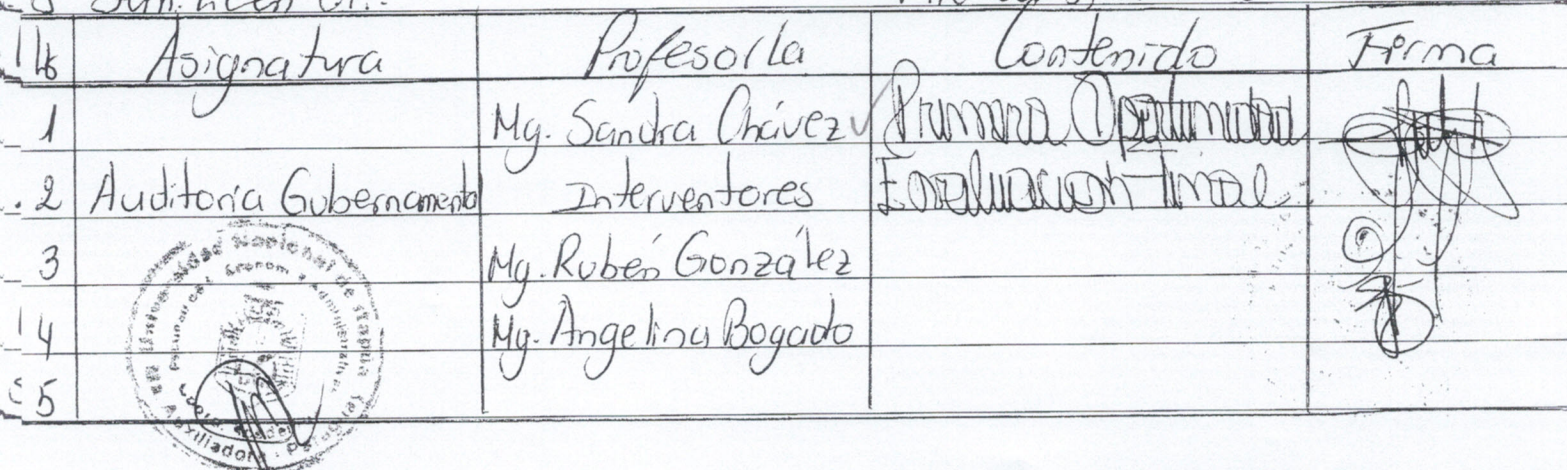 Asignatura Profesor/a Contenido Firma
1 Mg. Sandra Chávez Primera Oportunidad
2 Auditoría Gubernamental Interventores Evaluación Final
3 Mg. Rubén González
4 Mg. Angelina Bogado
5